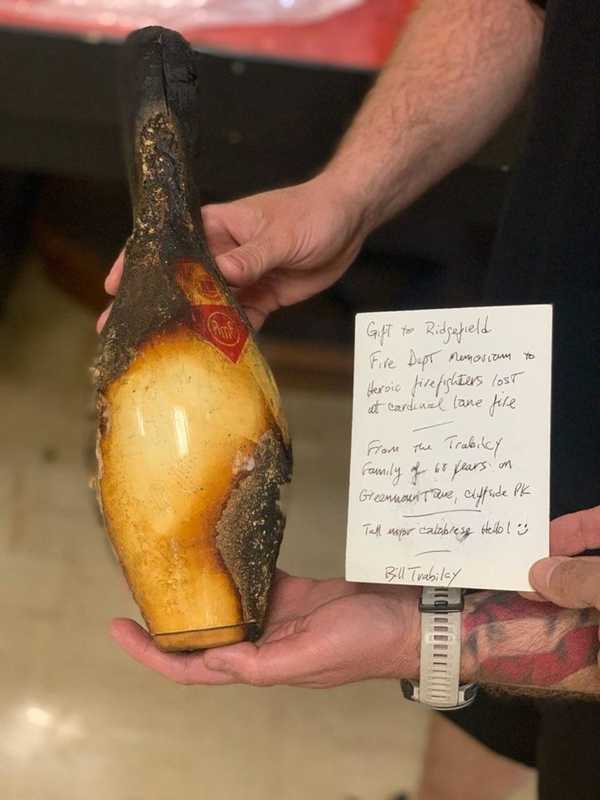 AMF
Gift to Ridgefield
Fire Dept Memoriam to
Heroic firefighters lost
at cardinal lane fire
From the Trabilcy
family of 68 years on
Greenmount ave, Cliffside PK
Tell mayor calabrese Hello!
Bill Trabilcy